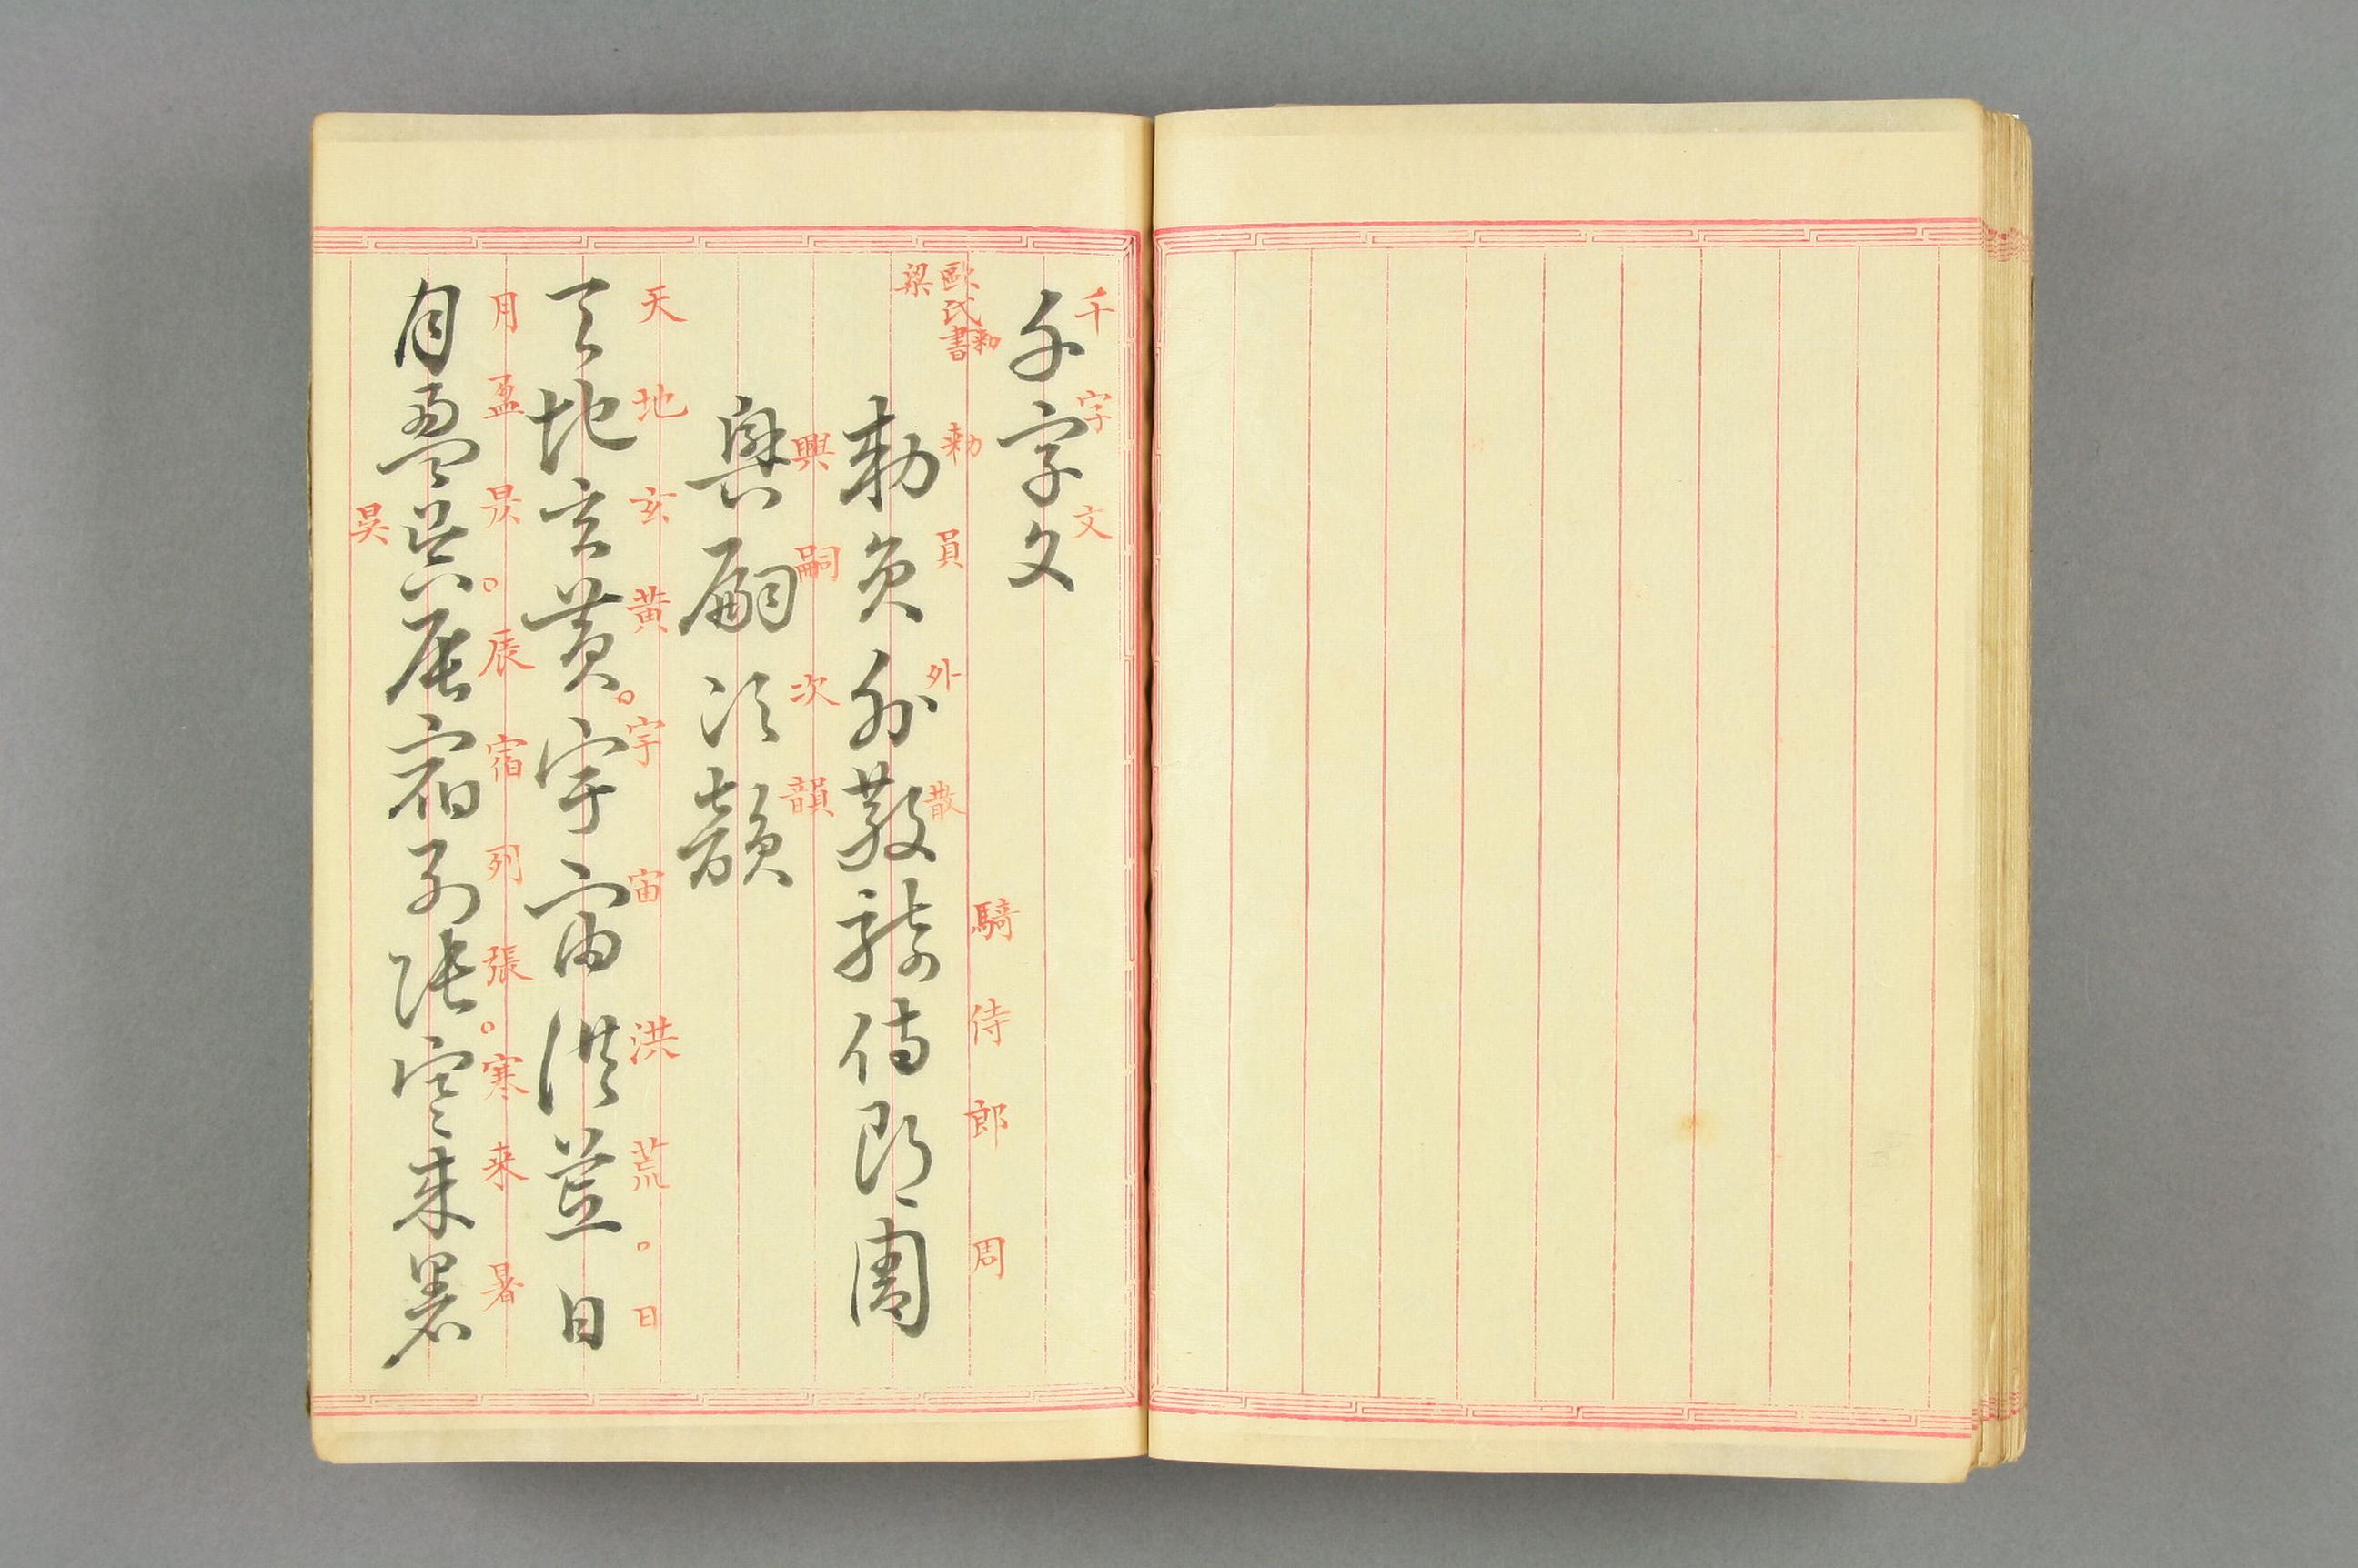 千字文
千字文
歐氏書勑
梁
勑員外散騎侍郎周
勑員外散騎侍郎周
興嗣次韻
興嗣次韻
天地玄黄。宇宙洪荒。日
天地玄黄宇宙洪荒日
月盈昃。辰宿列張。寒来暑
月盈昃辰宿列張寒来暑
昊